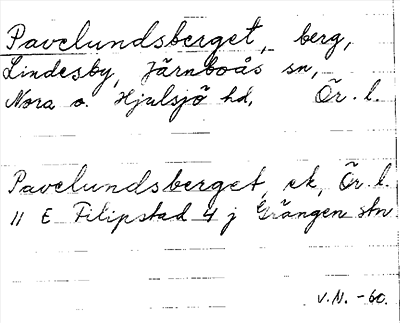 Pavelundsberget, berg,
Lindesby, Järnboås sn,
Nora o. Hjulsjö hd, Ör. l.
Pavelundsberget, ek, Ör. l.
11 E Filipstad 4 j Grängen stn
V.N. -60.